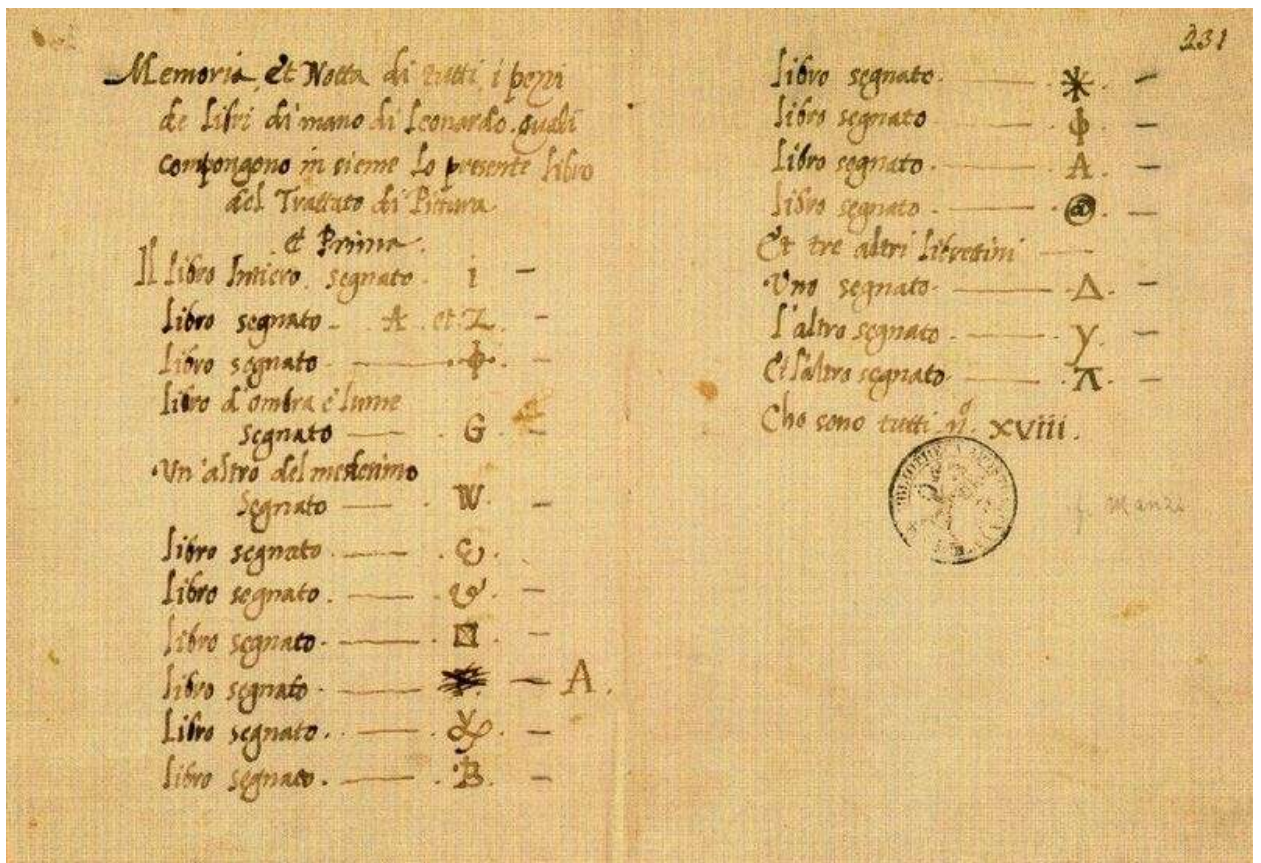 Memoria, et Notta di tutti i pezzi
de libri di mano di Leonardo, quali
compongono in sieme lo presente libro
del Trattato di Pittura
et Prima.
Il libro Intiero, segnato . i –
libro segnato – A et Z. –
libro segnato —— . ϕ . –
libro d'ombra e lume
segnato —— . G . –
Un'altro del medesimo
segnato —— . W . –
libro segnato . —— .
libro segnato . —— . –
libro segnato . —— . –
libro segnato . —— . – A.
libro segnato . —— . –
libro segnato . —— . B . –
231
libro segnato . —— –
libro segnato —— ϕ –
libro segnato . —— . A . –
libro segnato . —— . –
Et tre altri librettini ——
Uno segnato . —— . Δ . –
l'altro segnato —— . y . –
Et l'altro segnato —— . –
Che sono tutti nº. XVIII.
Manzi